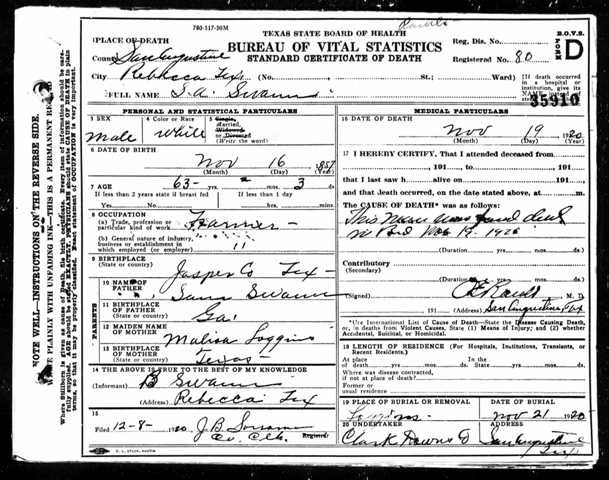 760-517-30M
TEXAS STATE BOARD OF HEALTH
BUREAU OF VITAL STATISTICS
STANDARD CERTIFICATE OF DEATH
B.O.V.S.
FORM D
Reg. Dis. No.
Registered No. 80
35910
PLACE OF DEATH
County San Augustine
City Rebecca Tex (No. St.; Ward)
[If death occurred in a hospital or institution, give its NAME instead of street
FULL NAME S. A. Swann
PERSONAL AND STATISTICAL PARTICULARS
3 SEX
Male
4 Color or Race
White
5 Single, Married, Widowed or Divorced
(Write the word)
6 DATE OF BIRTH
Nov 16 1857
(Month) (Day) (Year)
7 AGE
63 yrs. mos. 3 ds.
If less than 2 years state if breast fed
If less than 1 day
Yes No hrs. min.
8 OCCUPATION
(a) Trade, profession or particular kind of work Farmer
(b) General nature of industry, business or establishment in which employed (or employer) "
9 BIRTHPLACE
(State or country) Jasper Co Tex
PARENTS
10 NAME OF FATHER Sam Swann
11 BIRTHPLACE OF FATHER
(State or country) Ga.
12 MAIDEN NAME OF MOTHER Malisa Loggins
13 BIRTHPLACE OF MOTHER
(State or country) Texas
14 THE ABOVE IS TRUE TO THE BEST OF MY KNOWLEDGE
(Informant) B Swann
(Address) Rebecca Tex
15
Filed 12-8- 1920 J. B.
Co. Clk. Registrar
MEDICAL PARTICULARS
16 DATE OF DEATH
Nov 19 1920
(Month) (Day) (Year)
17 I HEREBY CERTIFY, That I attended deceased from
191 to 191
that I last saw h alive on 191
and that death occurred, on the date stated above, at m.
The CAUSE OF DEATH* was as follows:
This Man was found dead
in Bed Nov 19. 1920
(Duration) yrs. mos. ds.
Contributory
(Secondary)
(Duration) yrs. mos. ds.
(Signed) M. D.
191 (Address) San Augustine Tex
*Use International List of Cause of Death—State the Disease Causing Death, or, in deaths from Violent Causes, State (1) Means of Injury; and (2) whether Accidental, Suicidal, or Homicidal.
18 LENGTH OF RESIDENCE (For Hospitals, Institutions, Transients, or Recent Residents.)
At place of death yrs. mos. ds. In the State yrs. mos. ds.
Where was disease contracted, if not at place of death?
Former or usual residence
19 PLACE OF BURIAL OR REMOVAL
DATE OF BURIAL
Nov 21 1920
20 UNDERTAKER
Clark Downs
ADDRESS
San Augustine
Tex
NOTE WELL—INSTRUCTIONS ON THE REVERSE SIDE.
WRITE PLAINLY WITH UNFADING INK—THIS IS A PERMANENT